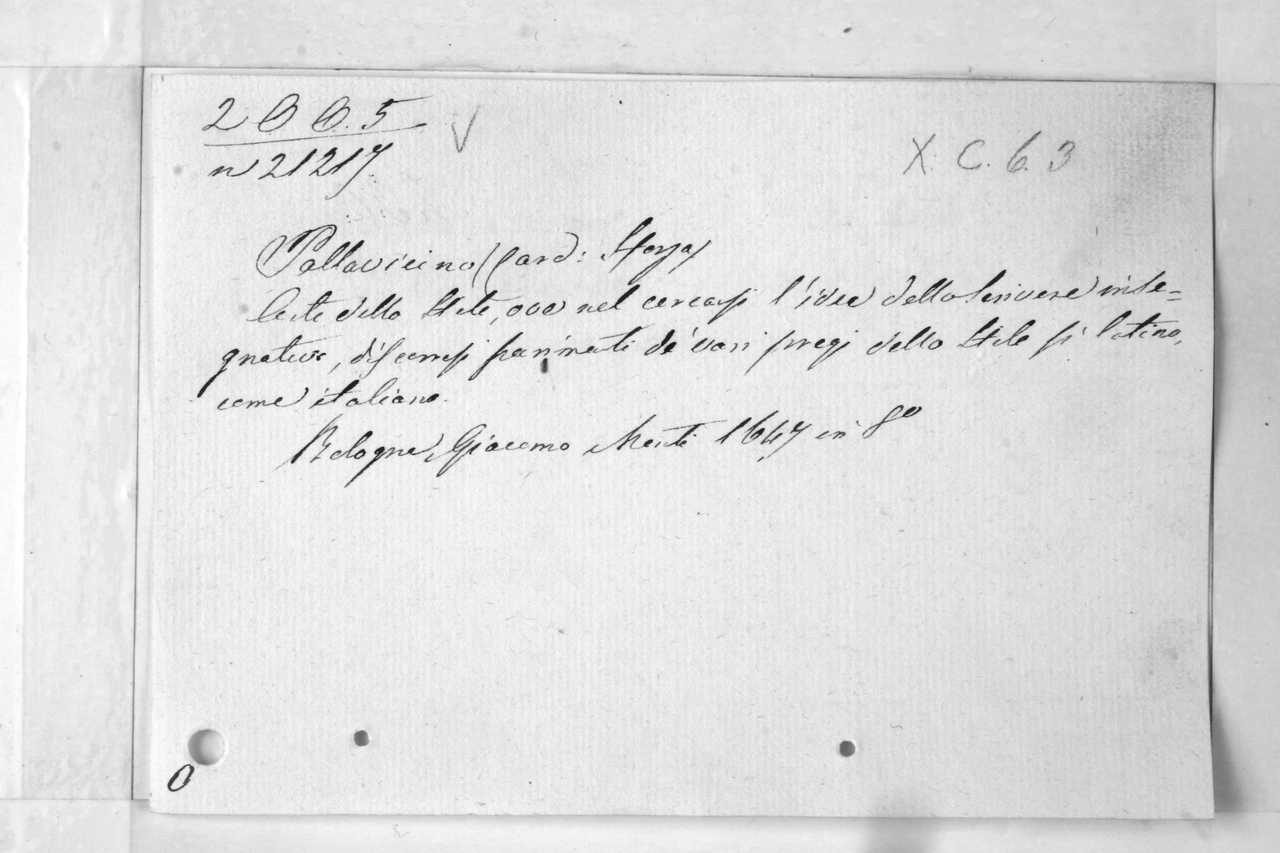 2 B 6. 5 V
n 21217.
X. C. 6. 3
Pallavicino (Card: Sforza)
Arte dello Stile, ove nel cercarsi l'idea dello Scrivere inse=
gnativo, discorresi partitamente de' varj pregi dello Stile sì latino,
come italiano.
Bologna, Giacomo Monti 1647 in 8o
0